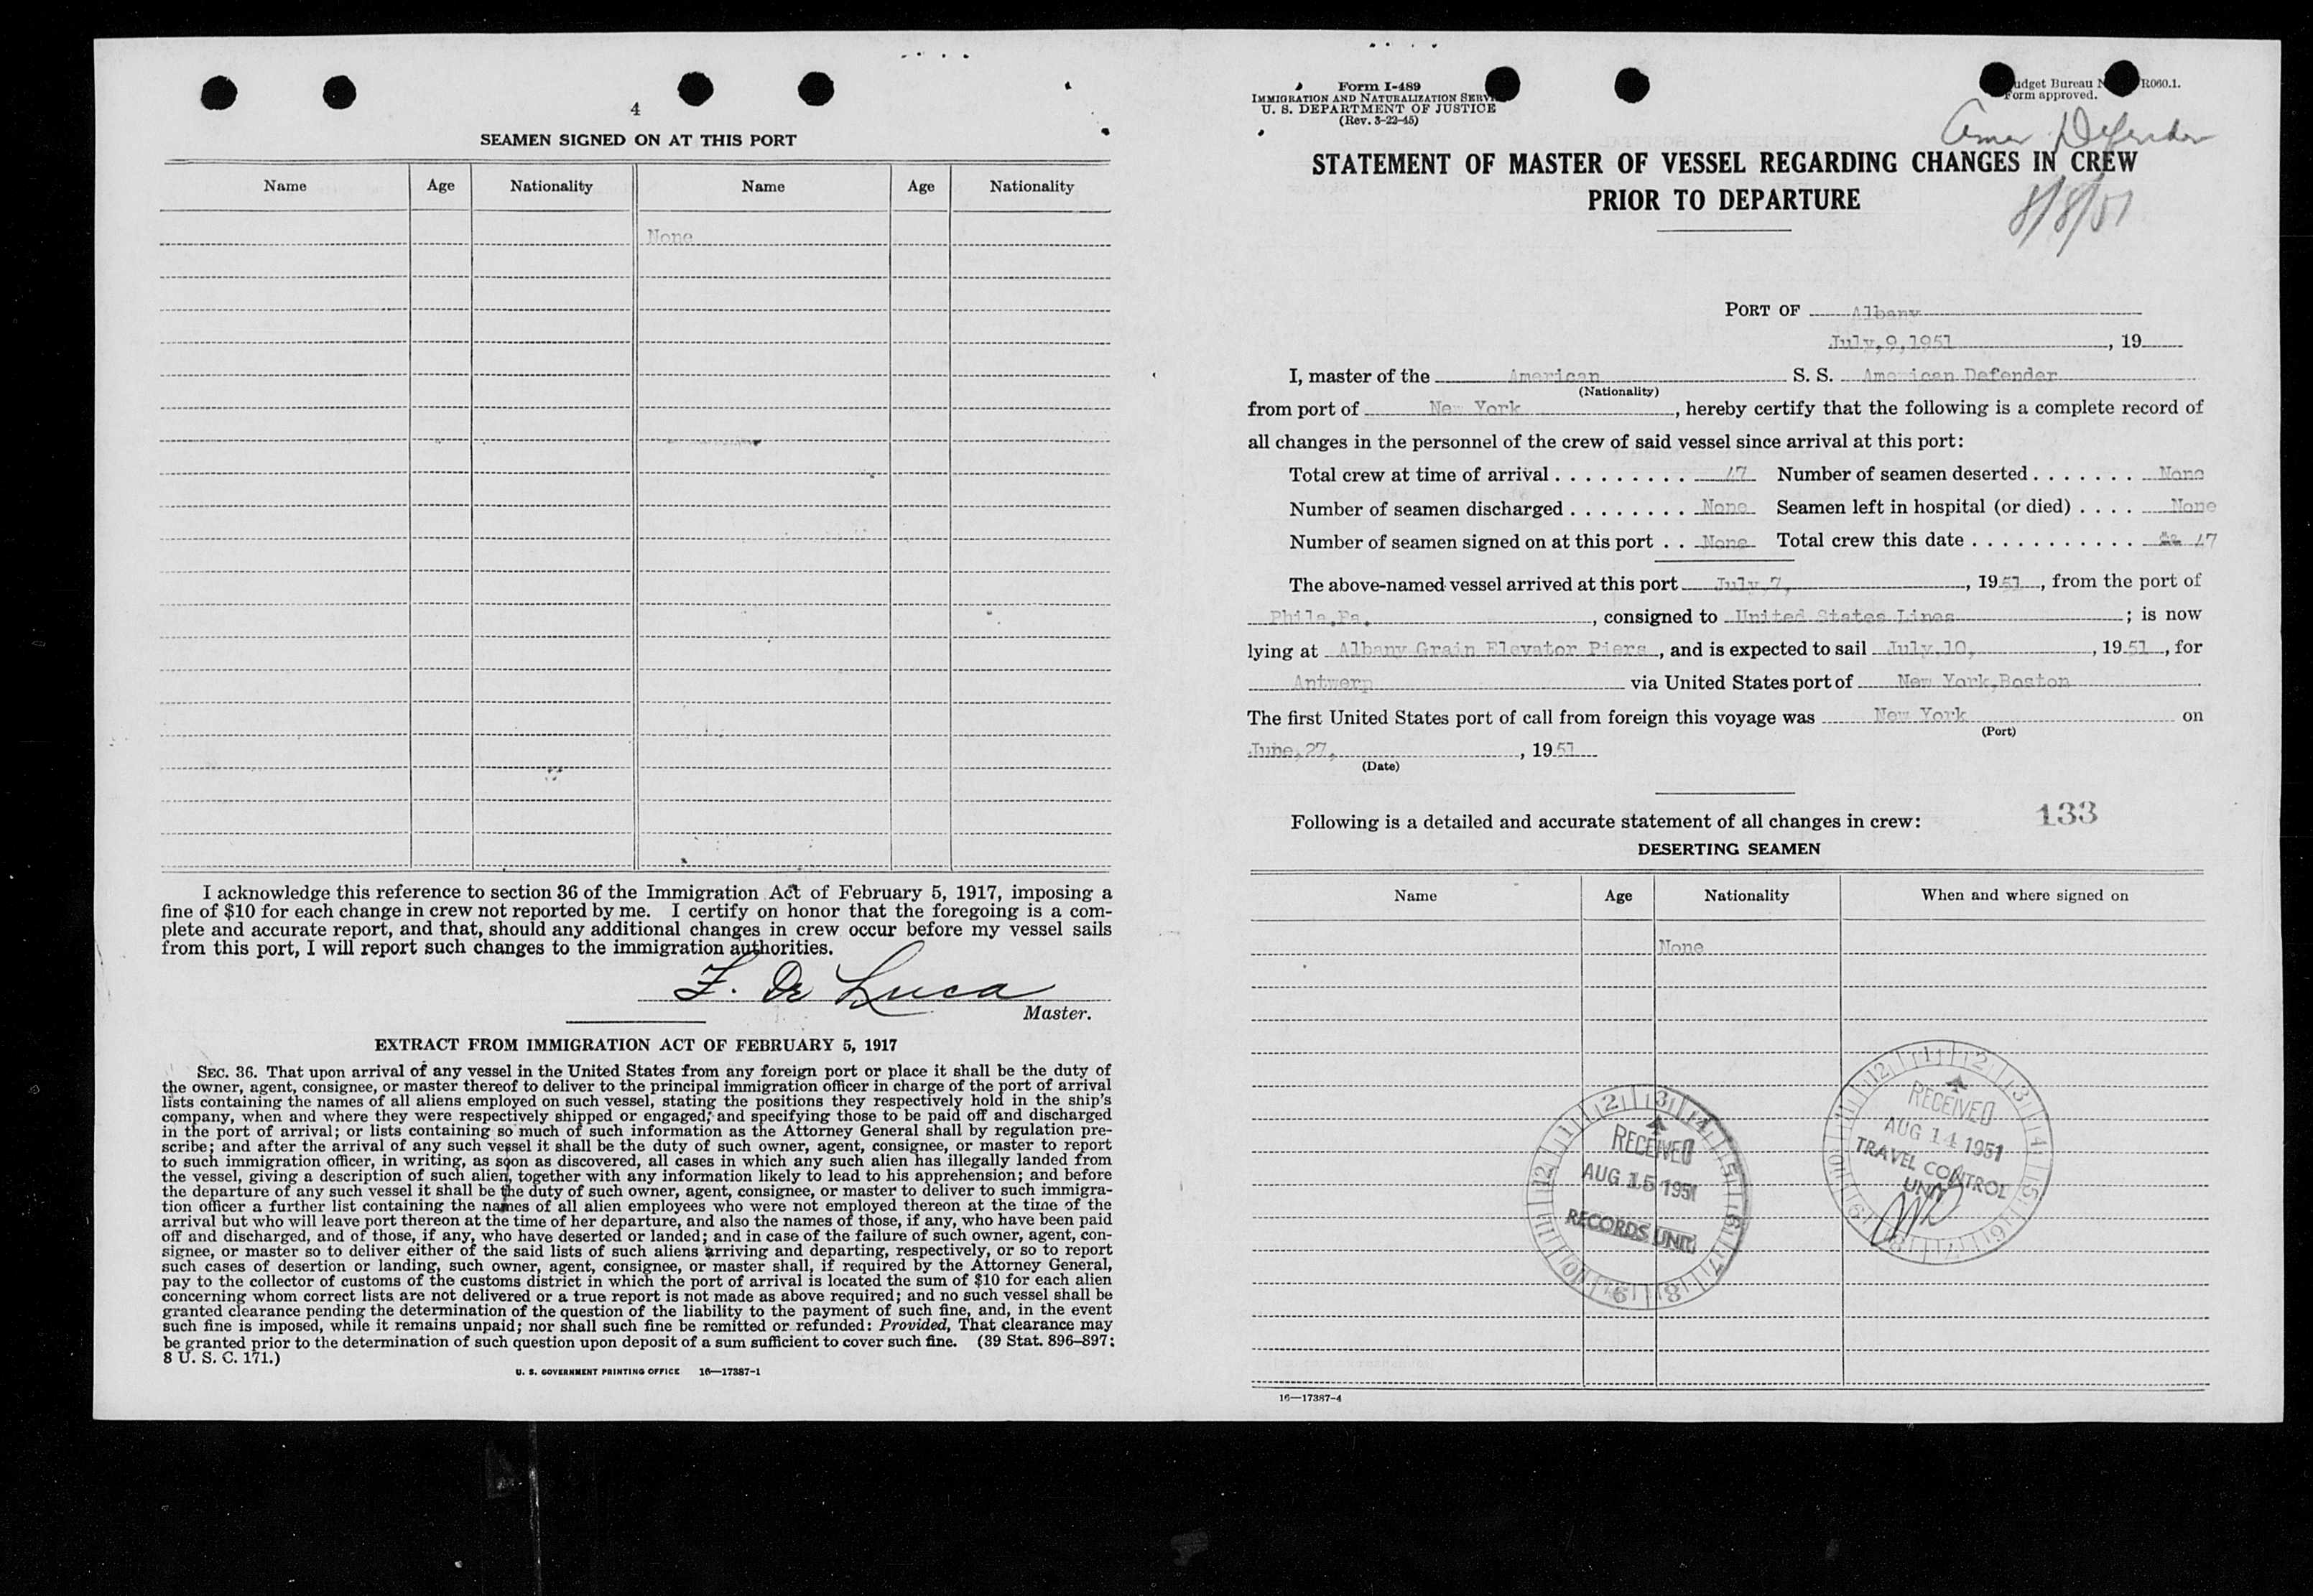 4
SEAMEN SIGNED ON AT THIS PORT
Name Age Nationality Name Age Nationality
None
I acknowledge this reference to section 36 of the Immigration Act of February 5, 1917, imposing a
fine of $10 for each change in crew not reported by me. I certify on honor that the foregoing is a com-
plete and accurate report, and that, should any additional changes in crew occur before my vessel sails
from this port, I will report such changes to the immigration authorities.
F. De Luca
Master.
EXTRACT FROM IMMIGRATION ACT OF FEBRUARY 5, 1917
SEC. 36. That upon arrival of any vessel in the United States from any foreign port or place it shall be the duty of
the owner, agent, consignee, or master thereof to deliver to the principal immigration officer in charge of the port of arrival
lists containing the names of all aliens employed on such vessel, stating the positions they respectively hold in the ship's
company, when and where they were respectively shipped or engaged, and specifying those to be paid off and discharged
in the port of arrival; or lists containing so much of such information as the Attorney General shall by regulation pre-
scribe; and after the arrival of any such vessel it shall be the duty of such owner, agent, consignee, or master to report
to such immigration officer, in writing, as soon as discovered, all cases in which any such alien has illegally landed from
the vessel, giving a description of such alien, together with any information likely to lead to his apprehension; and before
the departure of any such vessel it shall be the duty of such owner, agent, consignee, or master to deliver to such immigra-
tion officer a further list containing the names of all alien employees who were not employed thereon at the time of the
arrival but who will leave port thereon at the time of her departure, and also the names of those, if any, who have been paid
off and discharged, and of those, if any, who have deserted or landed; and in case of the failure of such owner, agent, con-
signee, or master so to deliver either of the said lists of such aliens arriving and departing, respectively, or so to report
such cases of desertion or landing, such owner, agent, consignee, or master shall, if required by the Attorney General,
pay to the collector of customs of the customs district in which the port of arrival is located the sum of $10 for each alien
concerning whom correct lists are not delivered or a true report is not made as above required; and no such vessel shall be
granted clearance pending the determination of the question of the liability to the payment of such fine, and, in the event
such fine is imposed, while it remains unpaid; nor shall such fine be remitted or refunded: Provided, That clearance may
be granted prior to the determination of such question upon deposit of a sum sufficient to cover such fine. (39 Stat. 896–897;
8 U. S. C. 171.)
U. S. GOVERNMENT PRINTING OFFICE 16—17387-1
Form I-489
IMMIGRATION AND NATURALIZATION
U. S. DEPARTMENT OF JUSTICE
(Rev. 3-22-45)
Bureau R060.1.
Form approved.
Amer. Defender
STATEMENT OF MASTER OF VESSEL REGARDING CHANGES IN CREW
PRIOR TO DEPARTURE
8/8/51
PORT OF Albany
July,9,1951, 19
I, master of the American S. S. American Defender
(Nationality)
from port of New York, hereby certify that the following is a complete record of
all changes in the personnel of the crew of said vessel since arrival at this port:
Total crew at time of arrival 47 Number of seamen deserted None
Number of seamen discharged None Seamen left in hospital (or died) None
Number of seamen signed on at this port None Total crew this date 47
The above-named vessel arrived at this port July 7, 1951, from the port of
Phila,Pa., consigned to United States Lines; is now
lying at Albany Grain Elevator Piers, and is expected to sail July,10, 1951, for
Antwerp via United States port of New York,Boston
The first United States port of call from foreign this voyage was New York on
(Port)
June,27, 1951
(Date)
133
Following is a detailed and accurate statement of all changes in crew:
DESERTING SEAMEN
Name Age Nationality When and where signed on
None
RECEIVED
AUG 15 1951
RECORDS UNIT
1 2 3 4 5 6 7 8 9 10 11 12
RECEIVED
AUG 14 1951
TRAVEL CONTROL
UNIT
1 2 3 4 5 6 7 8 9 10 11 12
16—17387-4